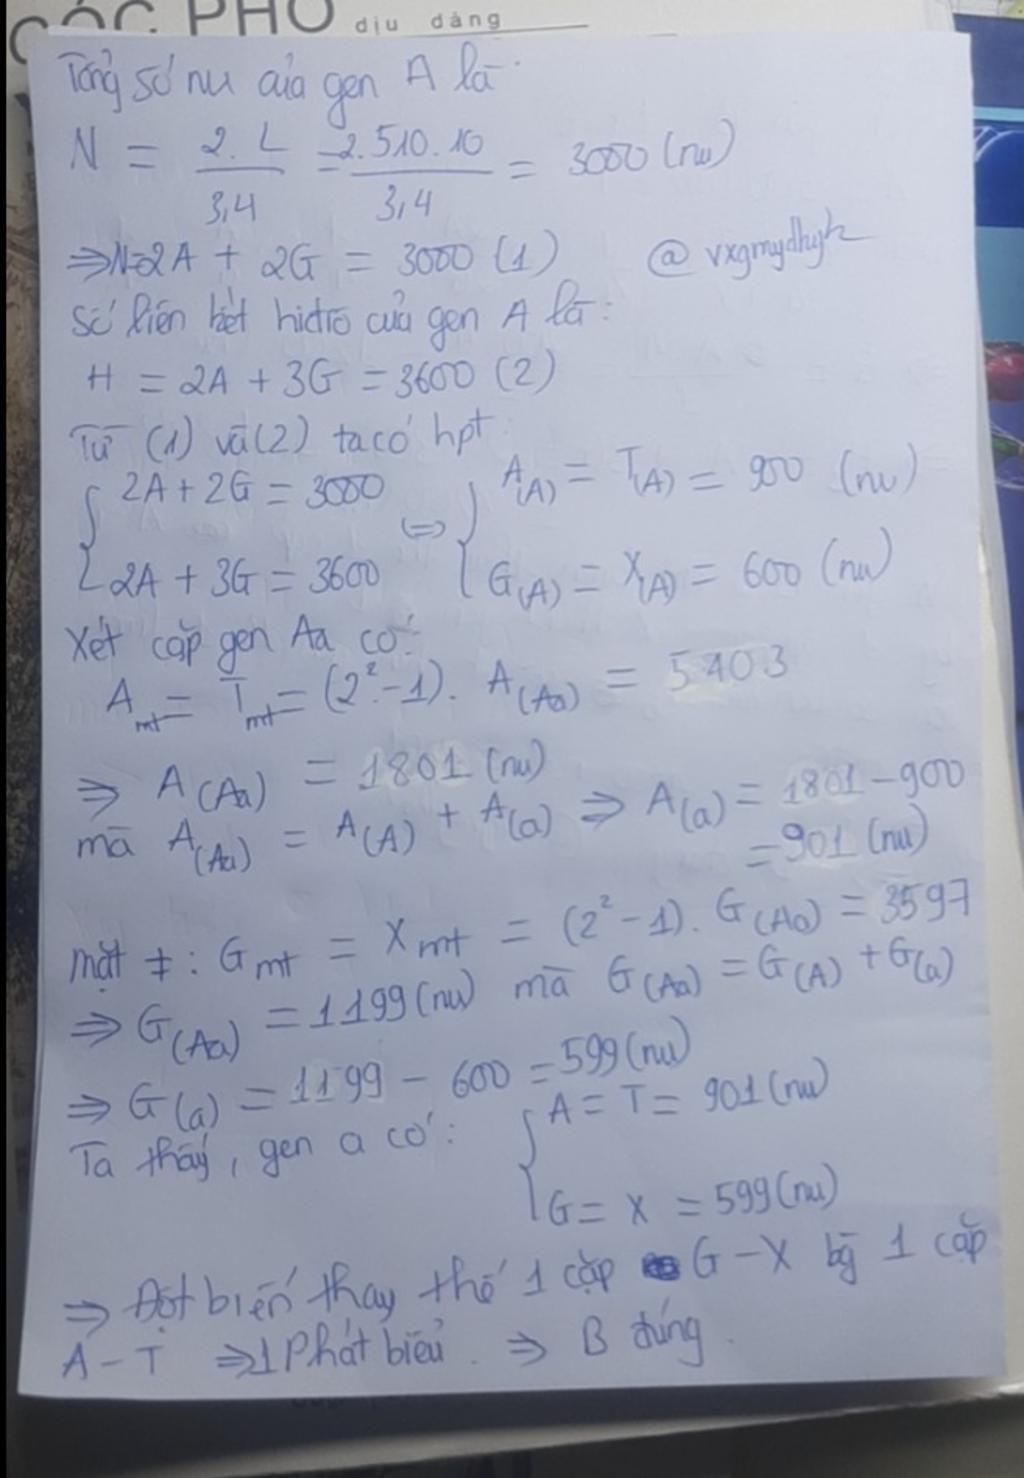 GÓC PHỐ dịu dàng
Tổng số nu của gen A là:
N = 2.L / 3,4 = 2.510.10 / 3,4 = 3000 (nu)
⇒ N=2A + 2G = 3000 (1) @vxgmydhyk
Số liên kết hiđrô của gen A là:
H = 2A + 3G = 3600 (2)
Từ (1) và (2) ta có hpt:
{ 2A + 2G = 3000 ⇔ { A(A) = T(A) = 900 (nu)
2A + 3G = 3600 G(A) = X(A) = 600 (nu)
Xét cặp gen Aa có:
Amt = Tmt = (2² - 1). A(Aa) = 5403
⇒ A(Aa) = 1801 (nu)
mà A(Aa) = A(A) + A(a) ⇒ A(a) = 1801 - 900
= 901 (nu)
mặt ≠ : Gmt = Xmt = (2² - 1). G(Aa) = 3597
⇒ G(Aa) = 1199 (nu) mà G(Aa) = G(A) + G(a)
⇒ G(a) = 1199 - 600 = 599 (nu)
Ta thấy, gen a có: { A = T = 901 (nu)
G = X = 599 (nu)
⇒ Đột biến thay thế 1 cặp G - X bg 1 cặp
A - T ⇒ 1 Phát biểu. ⇒ B đúng.